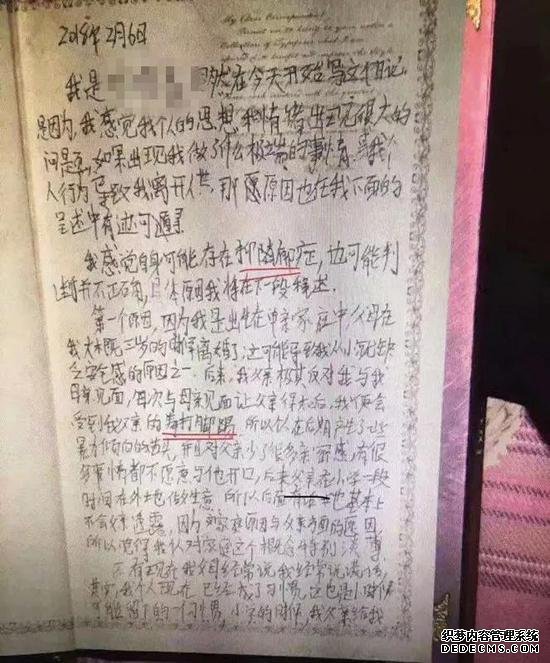 2018年2月6日
我是 然在今天开始写文日记.
是因为,我感觉我个人的思想和情绪出现很大的
问题,如果出现我做了什么极端的事情或我个
人行为导致我离开人世,那愿原因也在我下面的
呈述中有迹可遁.
我感觉自身可能存在抑郁症,也可能判
断并不正确,具体原因我将在下一段种述.
第一个原因,因为我是出生在单亲家庭中父母在
我大概三岁的时候离婚了,这可能导致我从小就缺
乏安全感的原因之一.后来,我父亲极其反对我与我
母亲见面,每次与母亲见面让父亲得知后,我便会
受到我父亲的毒打脚踢.所以个人在后期产生了些
暴力倾向的苗头,并且对父亲少了很多亲密感,有很
多事情都不愿意与他开口,后来父亲在小学一段
时间在外地做生意,所以后面 也基本上
不会父亲透露,因为家庭原因与父亲方面的原因
所以觉得我认对家庭这个概念特别淡薄
有现在我父母经常说我经常说谎话,
其实,我个人现在已经成了习惯,这也是小时候
可能留下的一个习惯,小学的时候,我父亲给我
My Class Correspondent
织梦内容管理系统
DEDECMS.COM